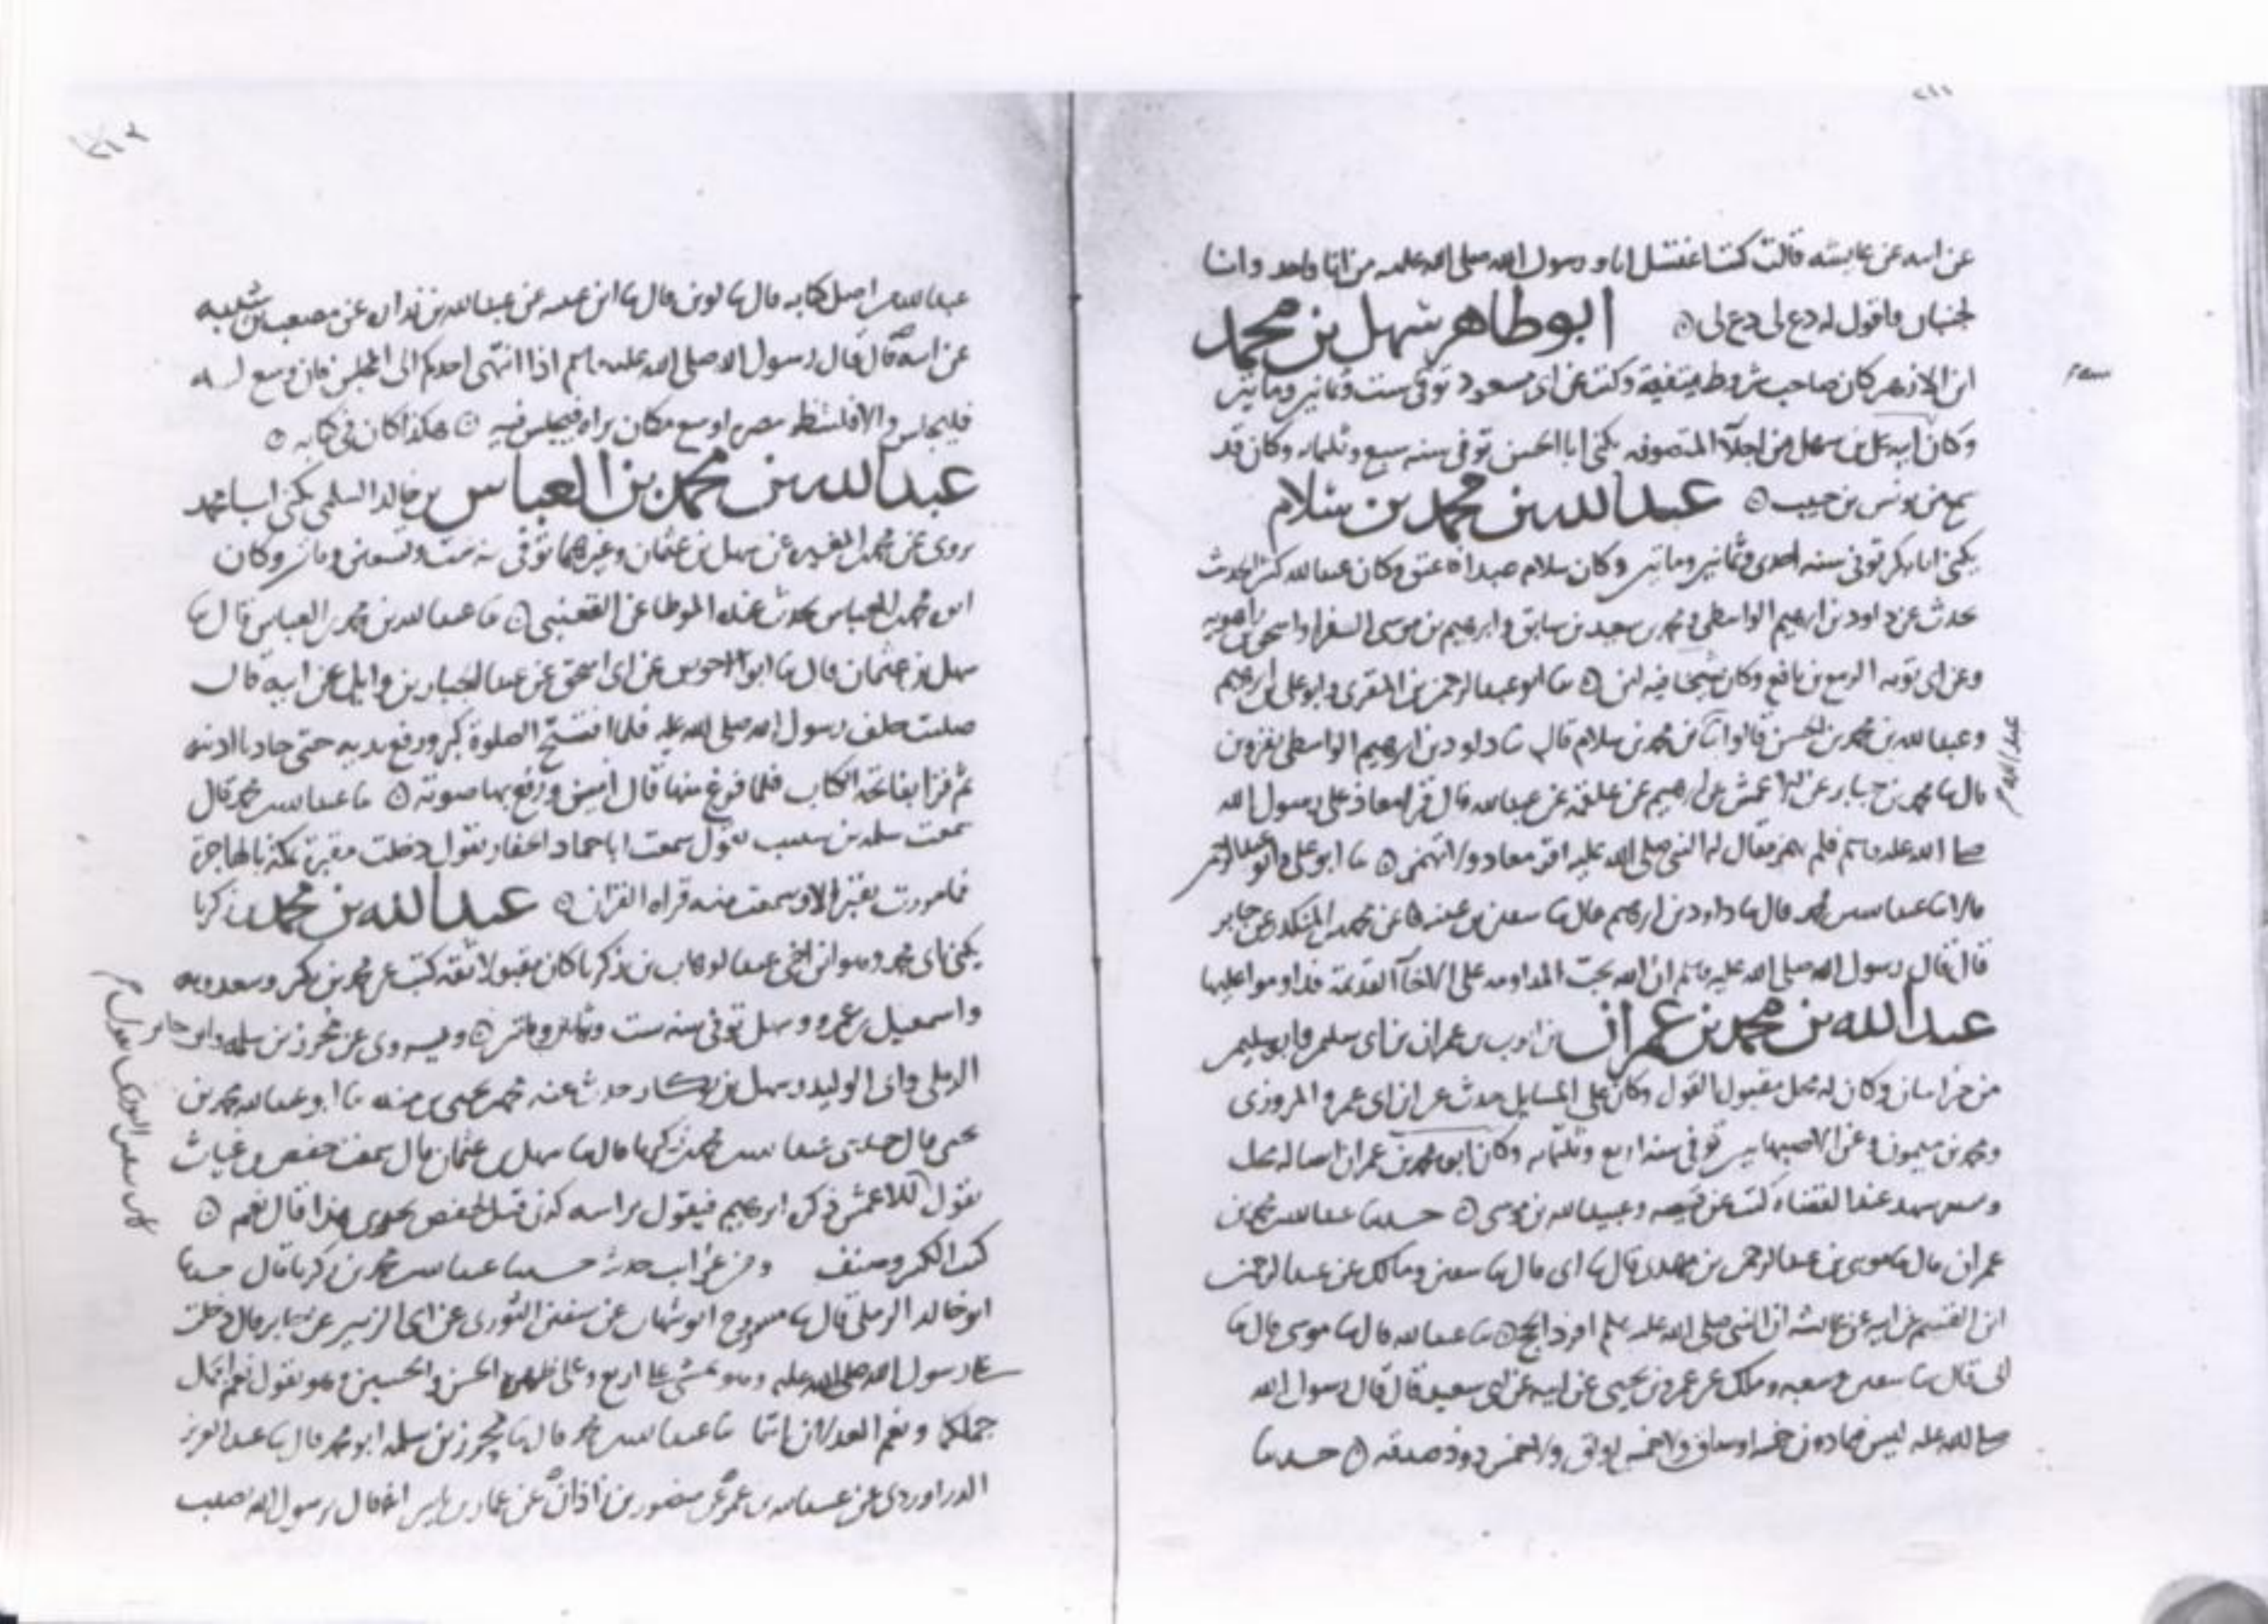 عن ابيه عن عايشه قالت كنت اغتسل انا ورسول الله صلى الله عليه من انا واحد وانا
لجنبان فاقول له دع لى دع لى ه ابو طاهر سهل بن محمد
ابن الازهر كان صاحب شروط توفى ست وثمانين ومايتين
وكان ابيه على بن سهل من اجلا المتصوفه يكنى ابا الحسن توفى سنه سبع وثلثمايه وكان قد
سمع من يونس بن حبيب ه عبد الله بن محمد بن سلام
يكنى ابا بكر توفى سنه احدى وثمانين ومايتين وكان سلام عبدا عتق وكان عبد الله كثير الحديث
يحدث عن داود بن ابرهيم الواسطى ومحمد بن سعيد بن سابق وابرهيم بن موسى الفرا واسحق بن راهويه
وعن اى توبه الربيع بن نافع وكان شيخا فيه لين ه ثنا ابو عبد الرحمن بن المقرى وابو على بن ابرهيم
وعبد الله بن محمد بن الحسن قالوا ثنا بن محمد بن سلام قال ثنا داود بن ابرهيم الواسطى بقزوين
قال ثنا محمد بن جابر عن الاعمش عن ابرهيم عن علقمه عن عبد الله قال قرا معاذ على رسول الله
صلى الله عليه وسلم فلم يهمز فقال له النبى صلى الله عليه اقر معاذ ولا تهمز ه ثنا ابو على وابو عبد الرحمن
قالا ثنا عبد الله بن محمد قال ثنا داود بن ابرهيم قال ثنا سفين بن عيينه عن محمد بن المنكدر عن جابر
قال قال رسول الله صلى الله عليه وسلم ان الله يحب المداومه على الاخا القديمة فداوموا عليها
عبد الله بن محمد بن عمران بن ايوب بن عمران بن اى سليم وابو سليم
من خراسان وكان له محل مقبول القول وكان على المسايل حدث عن ابن اى عمر والمروزى
ومحمد بن ميمون وعن الاصبهانيين توفى سنه اربع وثلثمايه وكان ابوه محمد بن عمران ايضا له محل
وستر يشهد عند القضاه كتب عن قبيصه وعبيد الله بن موسى ه حدثنا عبد الله بن محمد بن
عمران قال ثنا موسى بن عبد الرحمن بن مهدى قال ثنا اى قال ثنا سفين ومالك عن عبد الرحمن
ابن القسم عن ابيه عن عايشه ان النبى صلى الله عليه وسلم افرد الحج ه ثنا عبد الله قال ثنا موسى قال ثنا
اى قال ثنا سفين وشعبه ومالك عن عمرو بن يحيى عن ابيه عن اى سعيد قال قال رسول الله
صلى الله عليه ليس فيما دون خمسه اوساق ولا خمس اواق ولا خمس ذود صدقه ه حدثنا
عبد الله من اصل كتابه قال ثنا لوين قال ثنا ابن عيينه عن عبد الله بن زداره عن مصعب بن شيبه
عن ابيه قال قال رسول الله صلى الله عليه وسلم اذا انتهى احدكم الى المجلس فان وسع له
فليجلس والا فلينظر بصره اوسع مكان يراه فيجلس فيه ه هكذا كان فى كتابه ه
عبد الله بن محمد بن العباس بن خالد السلمى يكنى ابا محمد
يروى عن محمد بن المغيره عن سهل بن عثمان وغيرهما توفى سنه ست وتسعين وماتين وكان
ابوه محمد بن العباس يحدث عنه الموطا عن القعنبى ه ثنا عبد الله بن محمد بن العباس قال ثنا
سهل بن عثمان قال ثنا ابو الاحوص عن اى اسحق عن عبد الجبار بن وايل عن ابيه قال
صليت خلف رسول الله صلى الله عليه فلما افتتح الصلوة كبر ورفع يديه حتى حاذتا اذنيه
ثم قرا بفاتحه الكتاب فلما فرغ منها قال امين ورفع بها صوته ه ثنا عبد الله بن محمد قال
سمعت سلمه بن شبيب يقول سمعت ابا حماد الحفار يقول دخلت مقبره مكه بالهاجره
فما مررت بقبر الا وسمعت منه قراه القران ه عبد الله بن محمد بن زكريا
يكنى باى محمد وهو ابن اخى عبد الوهاب بن زكريا كان مقبولا ثقه كتب عن محمد بن بكر وسعدويه
واسمعيل بن عمرو وسهل توفى سنه ست وثمانين وماتين ه ويروى عن محرز بن سلمه وابن خالد
الرملى واى الوليد وسهل بن بكار حدث عنه محمد بن يحيى بن منده ثنا ابو عبد الله محمد بن
يحيى قال حدثنى عبد الله بن محمد بن زكريا قال ثنا سهل بن عثمان قال سمعت حفص بن غياث
يقول للاعمش ذكر ابرهيم فيقول براسه كذى قيل لحفص يحرك هكذا قال نعم ه
كتب الكثير وصنف ومن غرايب حديثه حدثنا عبد الله بن محمد بن زكريا قال حدثنا
ابو خالد الرملى قال ثنا مسروح ابو شهاب عن سفين الثورى عن اى الزبير عن جابر قال دخلت
على رسول الله صلى الله عليه وهو يمشى على اربع وعلى ظهره الحسن والحسين وهو يقول نعم الجمل
جملكما ونعم العدلان انتما ثنا عبد الله بن محمد قال ثنا محرز بن سلمه ابو محمد قال ثنا عبد العزيز
الدراوردى عن عبيد الله بن عمر عن منصور بن زاذان عن عمار بن ياسر انه قال رسول الله صلى